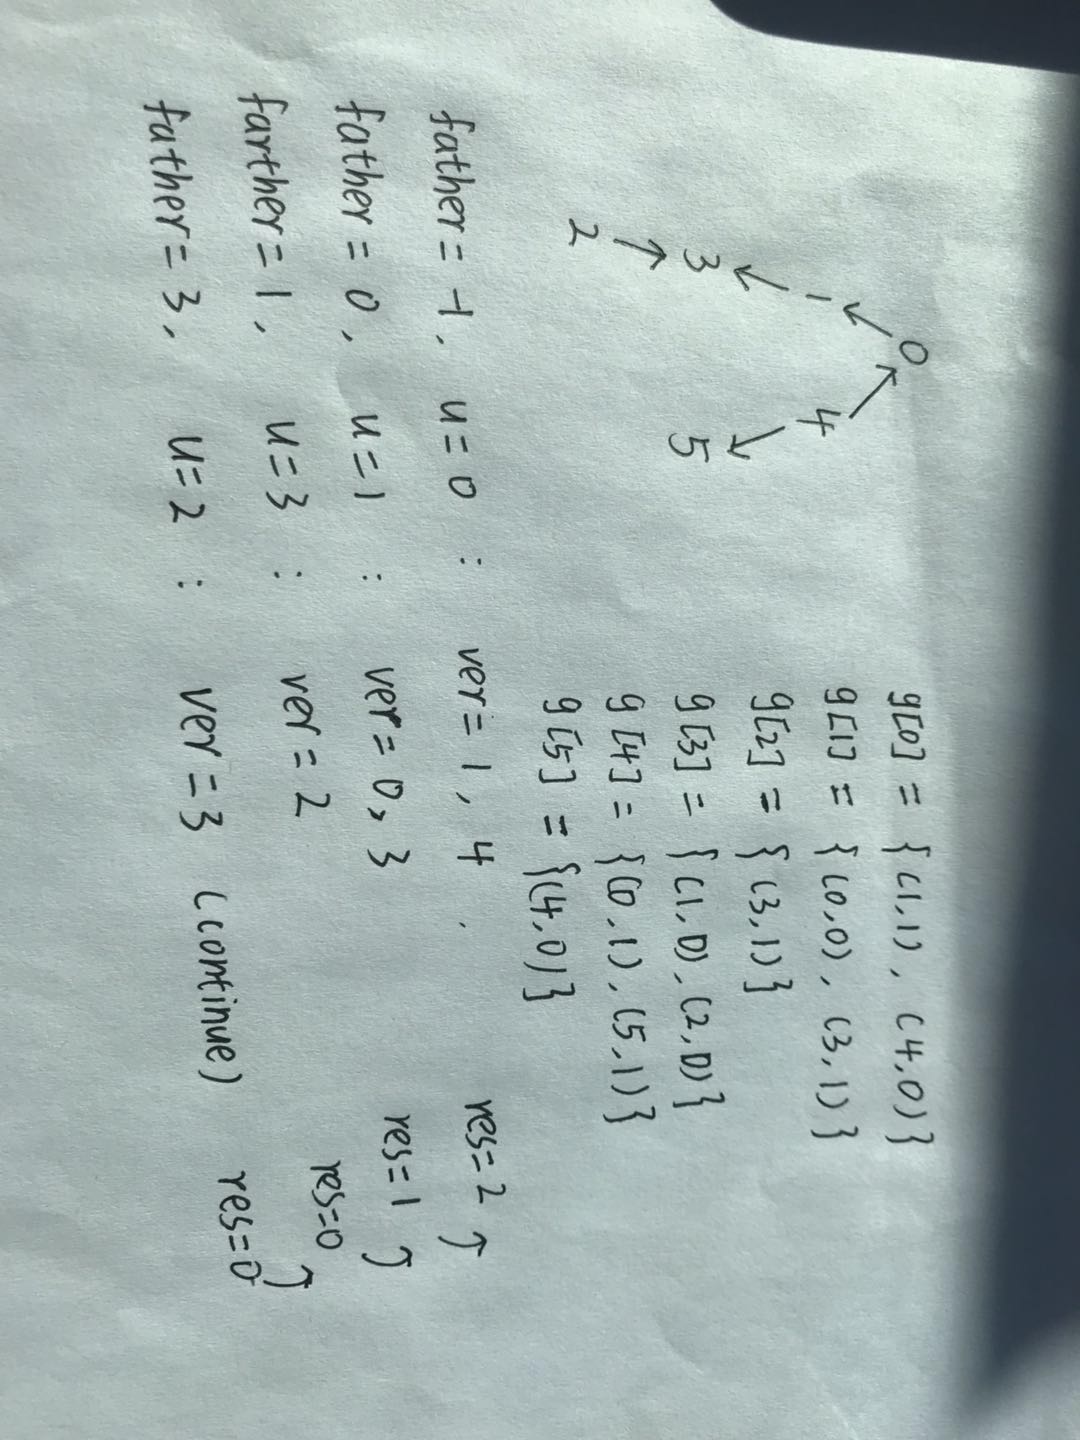 0
1 4
3 5
2
g[0] = {(1,1), (4,0)}
g[1] = {(0,0), (3,1)}
g[2] = {(3,1)}
g[3] = {(1,0), (2,0)}
g[4] = {(0,1), (5,1)}
g[5] = {(4,0)}
father = -1, u = 0 : ver = 1, 4. res = 2 ↑
father = 0, u = 1 : ver = 0, 3 res = 1 ↑
farther = 1, u = 3 : ver = 2 res = 0 ↑
father = 3, u = 2 : ver = 3 (continue) res = 0